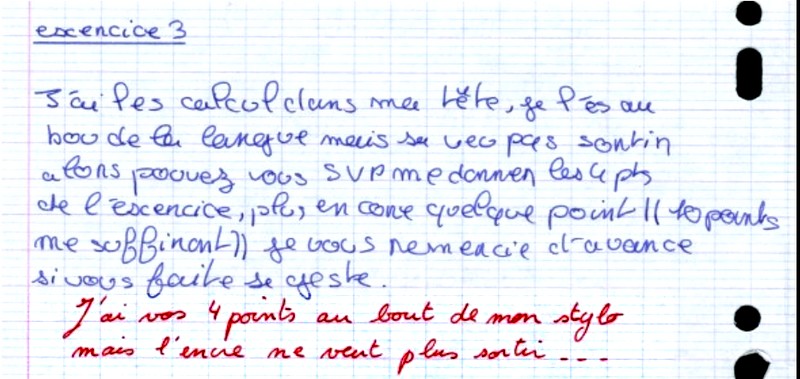 exencice 3
J'ai les calcul dans ma tête, je l'es au
bou de la langue mais sa veo pas sontin
alons pouvez vous SVP me donnen les 4 pts
de l'exencice, plus en cone quelque point (( 10 points
me suffinont)) je vous nemencie d'avance
si vous faite se geste.
J'ai vos 4 points au bout de mon stylo
mais l'encre ne veut plus sortir - - -